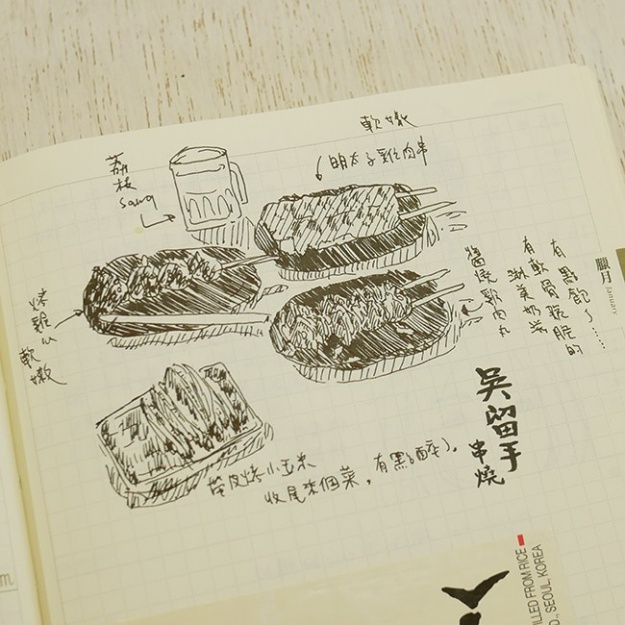 軟嫩
明太子雞肉串
荔枝
sawa
烤雞心
軟嫩
醬燒雞肉丸
有軟骨脆脆的
有點飽了……
臘月
January
吳留手
串燒
帶皮烤小玉米
收尾來個菜，有點醉)。
ILLED FROM RICE
D., SEOUL KOREA
m